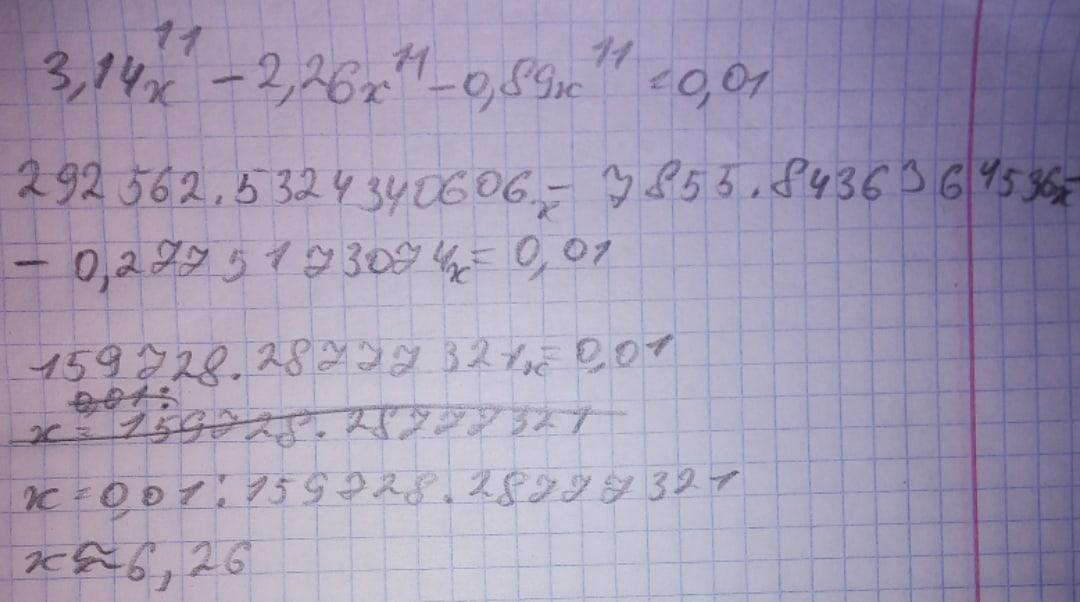 3,14x¹¹ - 2,26x¹¹ - 0,89x¹¹ = 0,01
292562.5324340606x - 7855.8436364536x -
- 0,2775173074x = 0,01
159728.28777321x = 0,01
0,01:
x = 159728.28777321
x = 0,01 : 159728.28777321
x ≈ 6,26